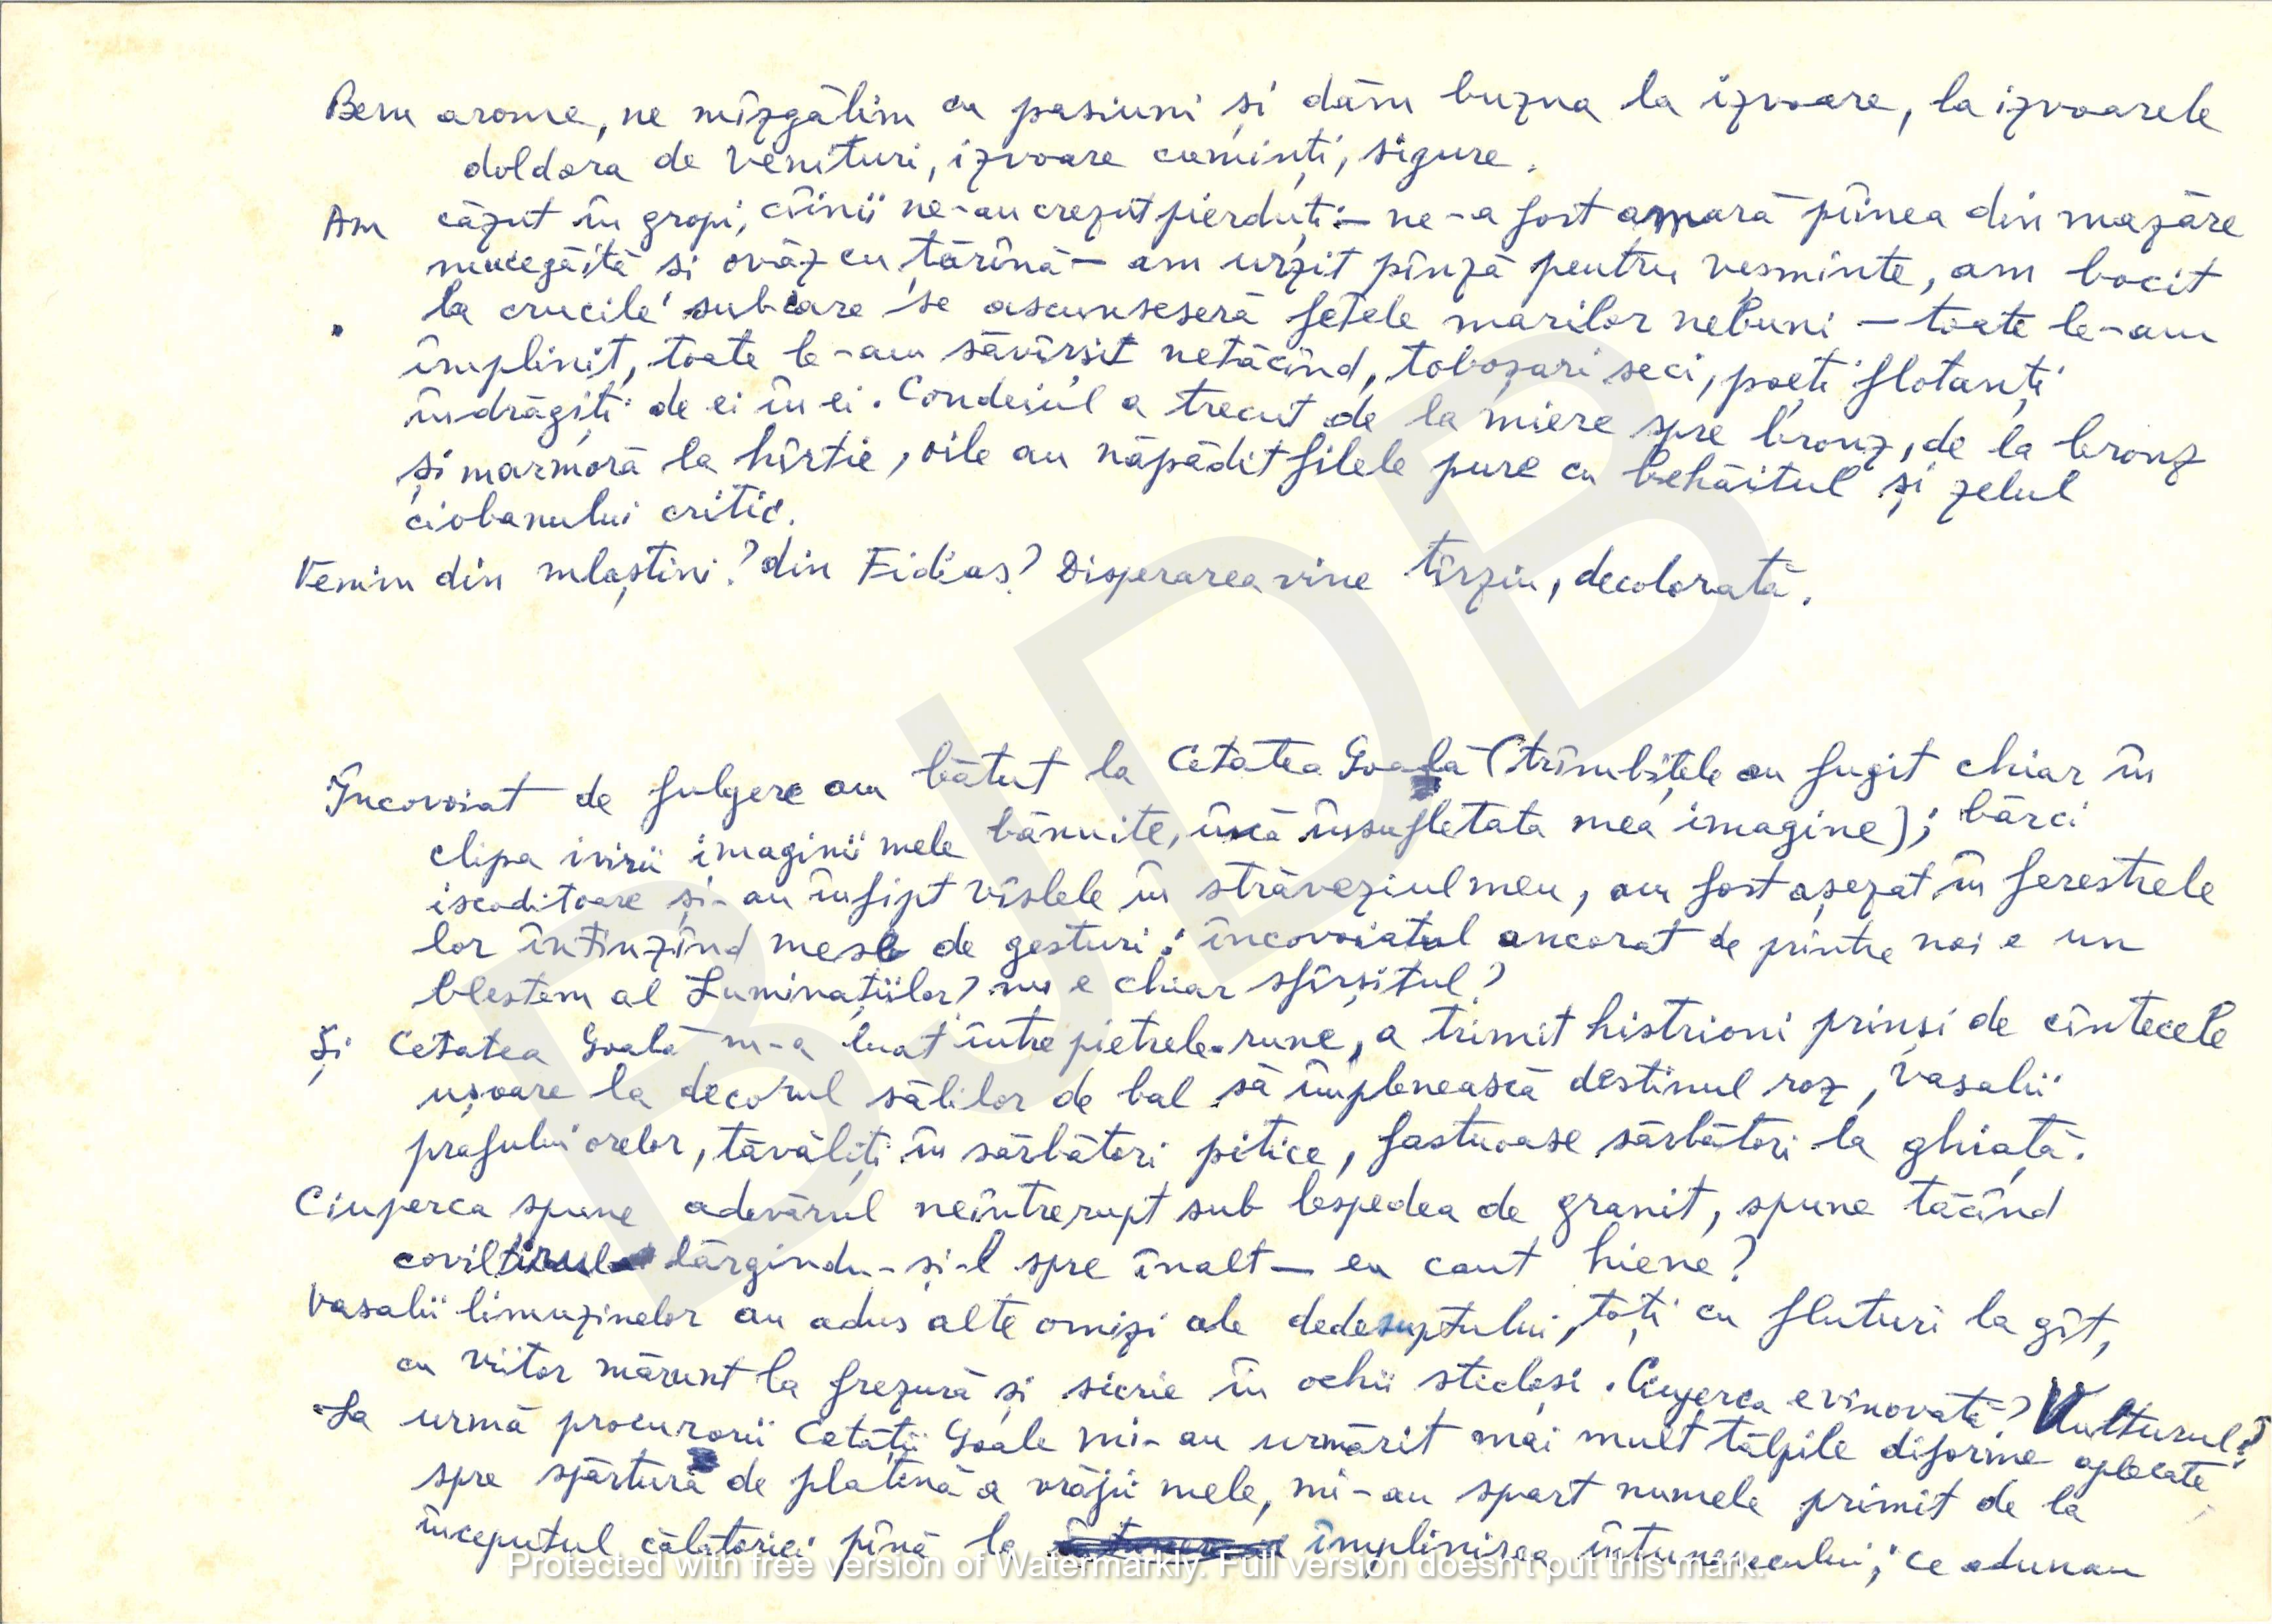 Bem arome, ne mîzgălim cu pasiuni și dăm buzna la izvoare, la izvoarele
doldora de venituri, izvoare cuminți, sigure.
Am căzut în gropi, cîinii ne-au crezut pierduți – ne-a fost amară pîinea din mazăre
mucegăită și ovăz cu țărînă – am urzit pînză pentru veșminte, am bocit
la crucile sub care se ascunseseră fețele marilor nebuni – toate le-am
împlinit, toate le-am săvîrșit netăcînd, toboșari seci, poeți flotanți
îndrăgiți de ei în ei. Condeiul a trecut de la miere spre bronz, de la bronz
și marmoră la hîrtie, oile au năpădit filele pure cu behăitul și zelul
ciobanului critic.
Venim din mlaștini? din Fidias? Disperarea vine tîrziu, decolorată.
Încovoiat de fulgere am bătut la Cetatea Goală (trîmbițele au fugit chiar în
clipa ivirii imaginii mele bănuite, încă însuflețata mea imagine); bărci
iscoditoare și-au înfipt vîslele în străveziul meu, am fost așezat în ferestrele
lor întinzînd mese de gesturi: încovoiatul ancorat de printre noi e un
blestem al Luminațiilor? nu e chiar sfîrșitul?
Și Cetatea Goală m-a luat între pietrele-rune, a trimit histrioni prinși de cîntecele
ușoare la decorul sălilor de bal să împlenească destinul roz, vasalii
prafului orelor, tăvăliți în sărbători pitice, fastuoase sărbători la ghiață.
Ciuperca spune adevărul neîntrerupt sub lespedea de granit, spune tăcînd
coviltirul lărgindu-și-l spre înalt – eu caut hiene?
Vasalii limuzinelor au adus alte omizi ale dedesuptului, toți cu fluturi la gît,
cu viitor mărunt la frezură și sicrie în ochii sticloși. Ciuperca e vinovată? Vulturul?
La urmă procurorii Cetății Goale mi-au urmărit mai mult tălpile diforme aplecate
spre spărtura de platină a vrăjii mele, mi-au spart numele primit de la
începutul călătoriei pînă la împlinirea întunerecului; ce adunau
Protected with free version of Watermarkly. Full version doesn't put this mark.
BJDB